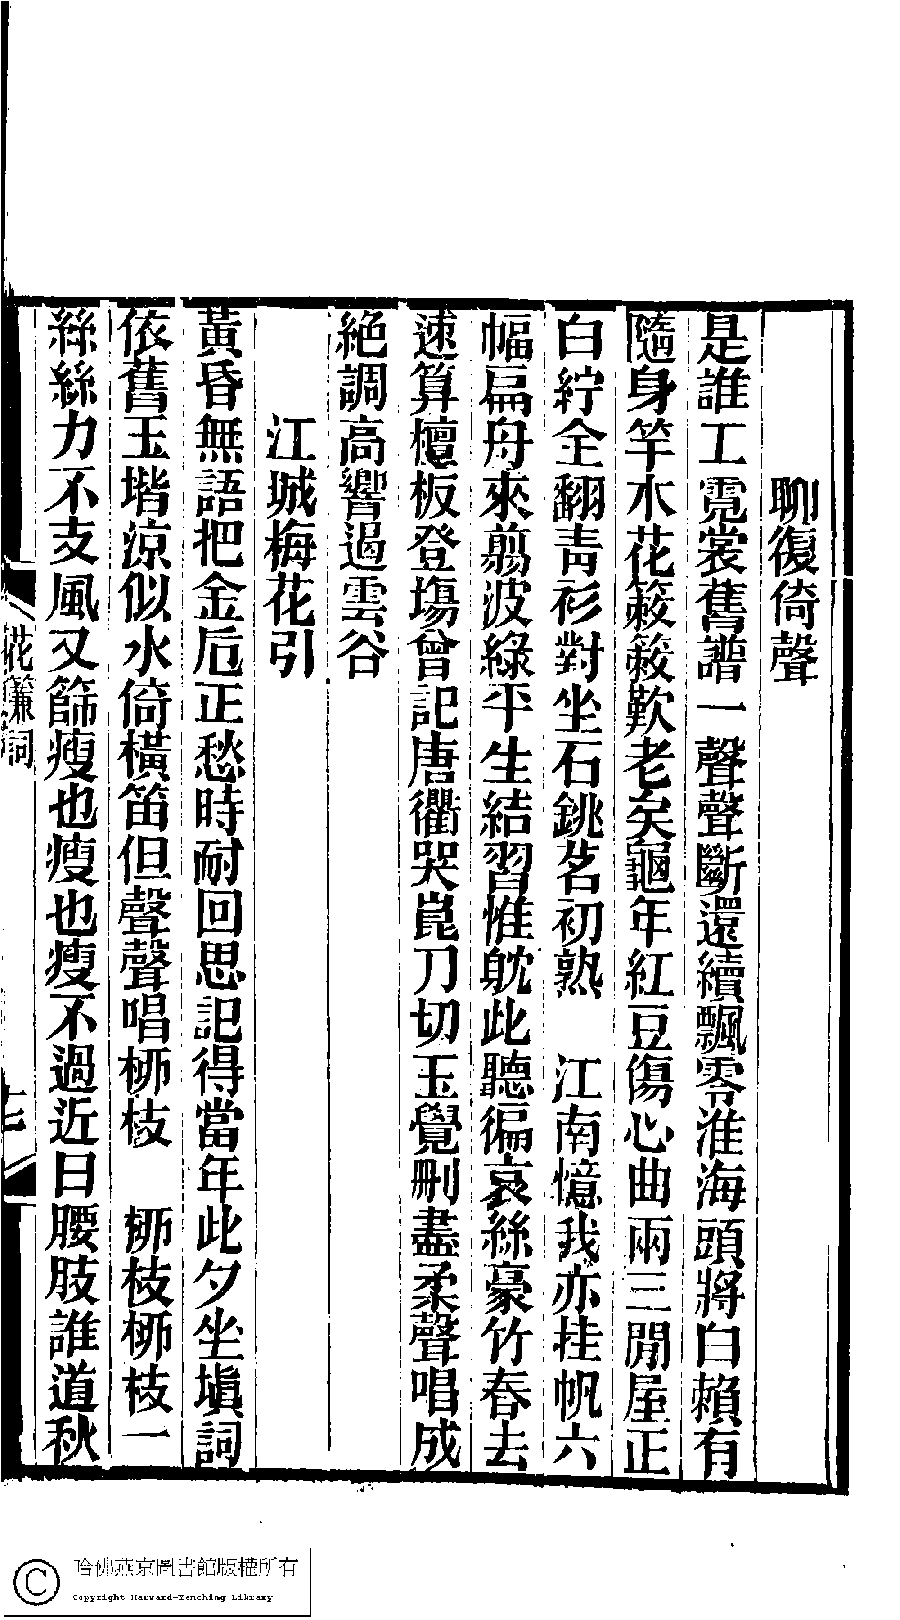 聊復倚聲
是誰工霓裳舊譜一聲聲斷還續飄零淮海頭將白賴有
隨身竿水花簌簌歎老矣龜年紅豆傷心曲兩三閒屋正
白紵全翻青衫對坐石銚茗初熟　江南憶我亦挂帆六
幅扁舟來翦波綠平生結習惟躭此聽徧哀絲豪竹春去
速算檀板登塲曾記唐衢哭崑刀切玉覺刪盡柔聲唱成
絶調高響遏雲谷
江城梅花引
黃昏無語把金卮正愁時耐回思記得當年此夕坐塡詞
依舊玉堦涼似水倚橫笛但聲聲唱栁枝　栁枝栁枝一
絲絲力不支風又篩瘦也瘦也瘦不過近日腰肢誰道秋
花簾詞
哈佛燕京圖書館版權所有
Copyright Harvard-Yenching Library